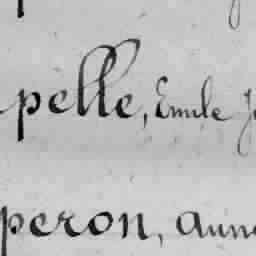 pelle, Emile J
peron, Anne